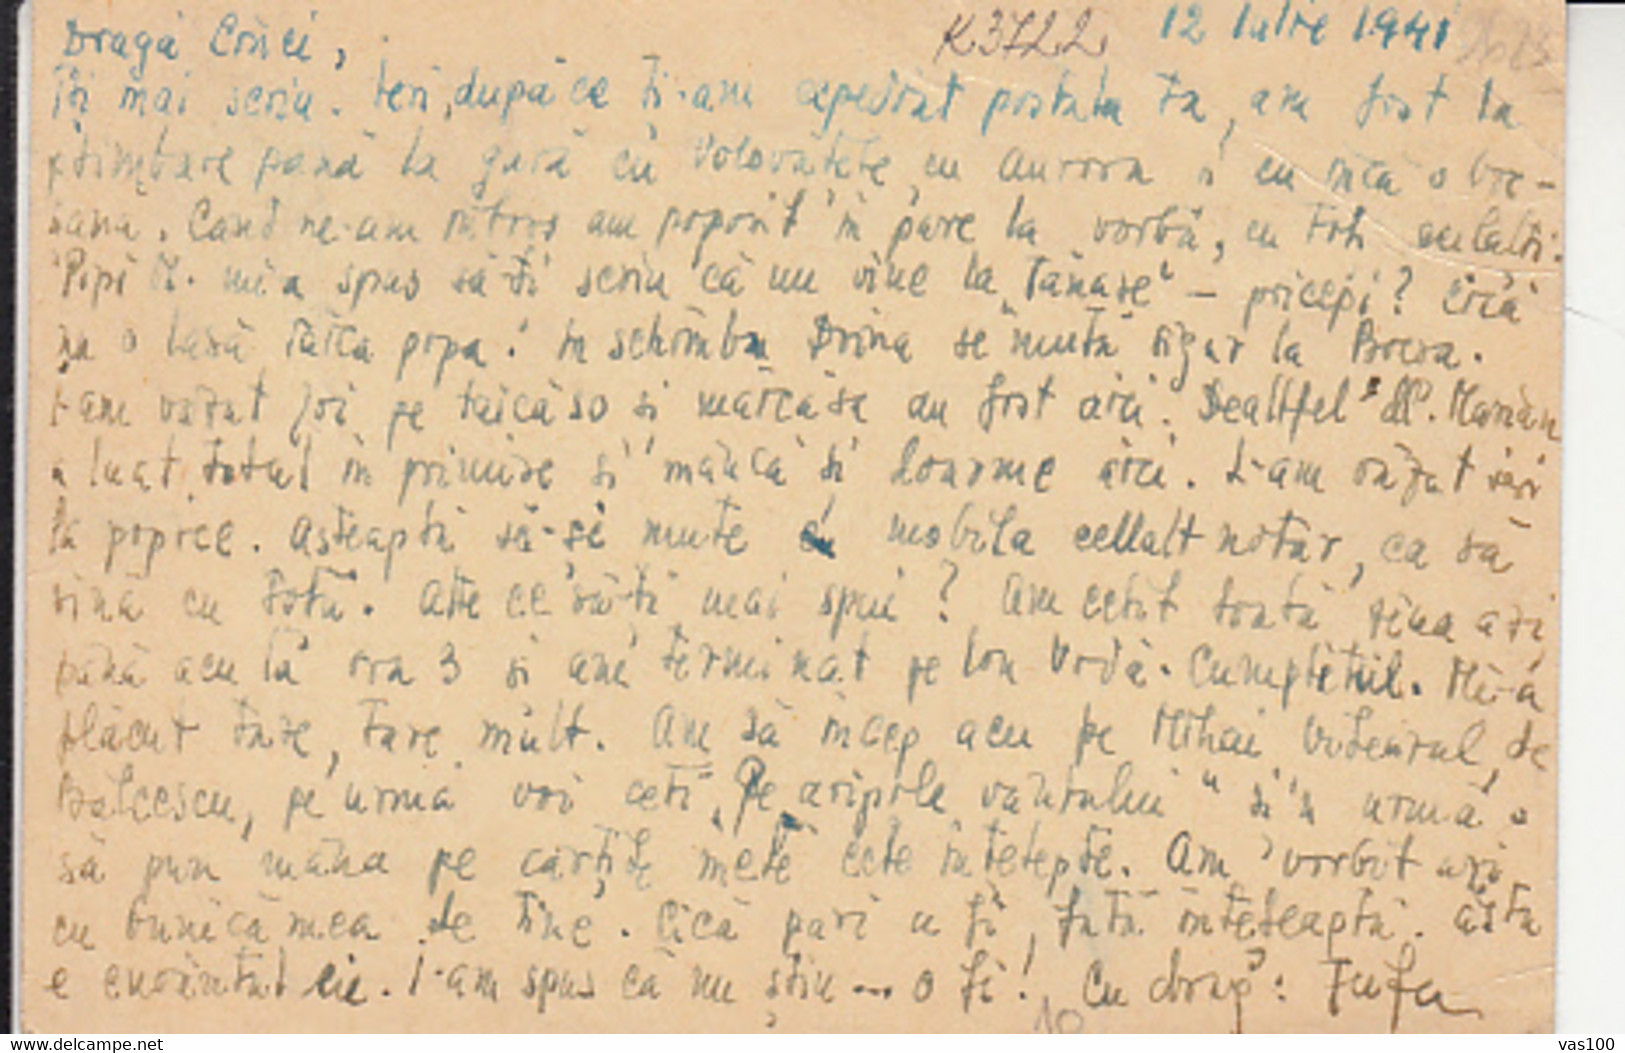 K3722 12 Iulie 1941
Dragă
Îți mai scriu. Ieri, după ce ți-am expediat postala ta, am fost la
plimbare pană la gară cu Volovățete, cu Aurora și cu incă o
Cand ne-am intors am poposit in parc la vorbă, cu toti ceilalti.
Pipi mi-a spus să-ti scriu că nu vine la "Tănase" – pricepi? Cică
nu o lasă taica popa. In schimbu Doina se mută sigur la
L-am văzut joi pe taicăso si maicăsa au fost aici. Dealtfel Dl. Marian
a luat totul in primire si mănăcă si doarme aici. L-am văzut ieri
la popice. Asteaptă să-si mute mobila cellalt notar, ca să
vină cu totu. Alte ce să-ti mai spui? Am cetit toată ziua azi
până acu la ora 3 si am terminat pe Ion Vodă. Cumplitul. Mi-a
plăcut tare, tare mult. Am să incep acu pe Mihai Viteazul, de
Bălcescu, pe urmă voi ceti "Pe aripele vantului" si'n urmă o
să pun mâna pe cărțile mele cele intelepte. Am vorbit azi
cu bunicămea de tine. Cică pari a fi, fată inteleaptă. ăsta
e cuvântul ei. I-am spus că nu știu ... o fi! Cu drag:
vas100